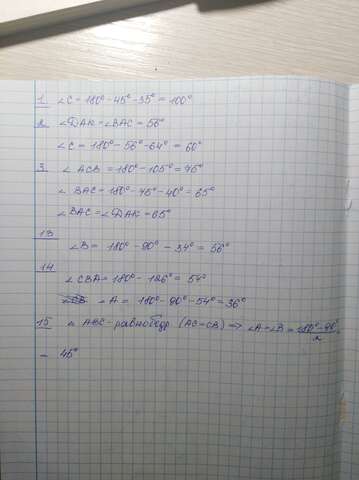 1. ∠C = 180° - 45° - 35° = 100°
2. ∠DAK = ∠BAC = 56°
∠C = 180° - 56° - 64° = 60°
3. ∠ACB = 180° - 105° = 75°
∠BAC = 180° - 75° - 40° = 65°
∠BAC = ∠DAK = 65°
13
∠B = 180° - 90° - 34° = 56°
14
∠CBA = 180° - 126° = 54°
∠A = 180° - 90° - 54° = 36°
15 △ ABC - равнобедр (AC = CB) => ∠A = ∠B = (180° - 90°)/2
= 45°